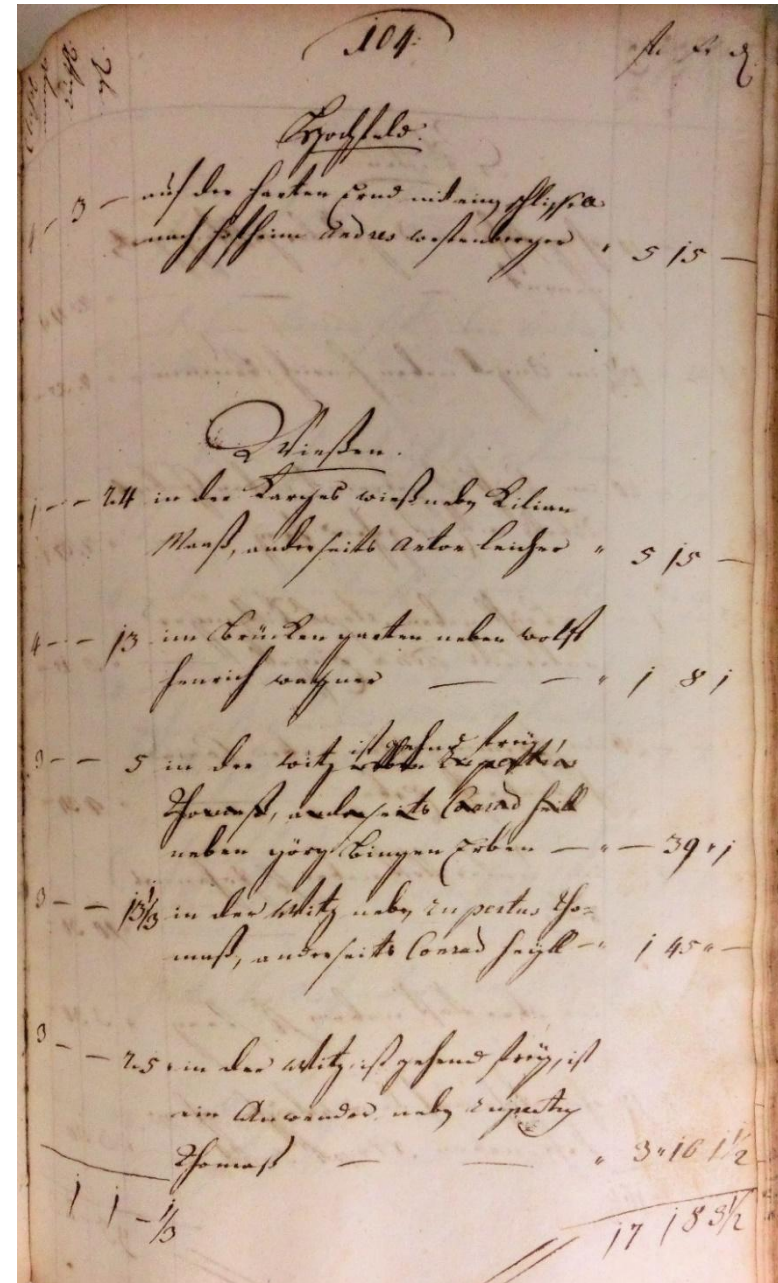 104.
fl. xr. ₰
Hochfeld:
1 - 3 - auf der harten Erd
nach Hoffheim Andres Westenberger " 5 15 —
Wießen.
1 - - 24 in der Karges wieß neben Kilian
Mauß, anderseits Anton Leicher " 5 15 —
4 - - 13 im Brücken garten neben wolff
Henrich wagner — — " 1 8 1
3 - - 5 in der Witz ist gehend freÿ,
Thomaß, anderseits Conrad Heill
neben görg Bingen Erben — " — 39 " 1
3 - - 13 1/3 in der Witz neben rupertus Tho=
maß, anderseits Conrad Heÿll — " 1 45 " —
3 - - 25 in der Witz, ist gehend freÿ, ist
ein Anwender neben
Thomaß — — " 3 " 16 1 1/2
1 1 - 1/3
17 18 3 1/2